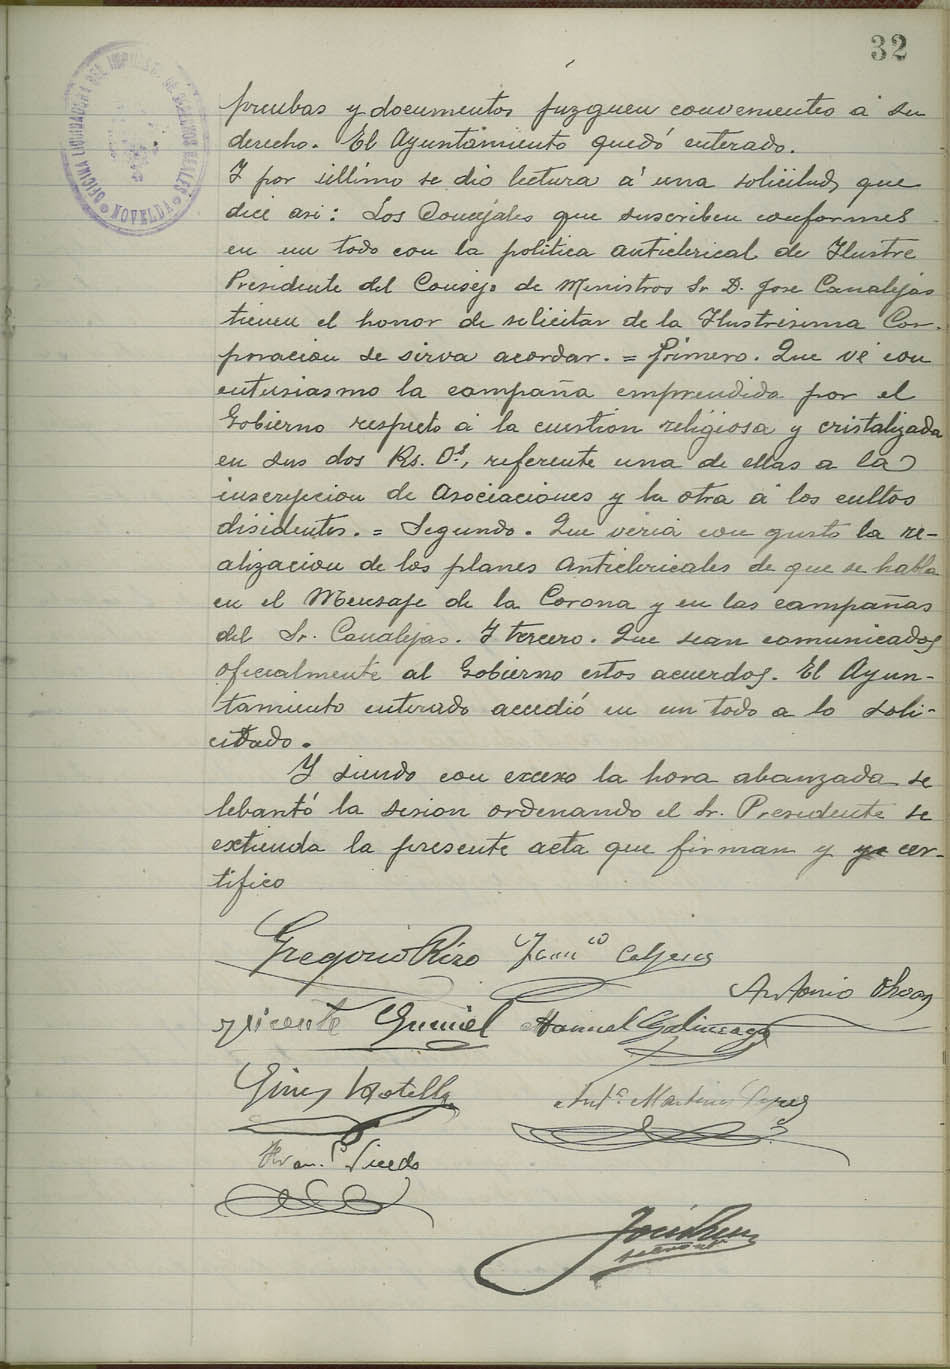 32
OFICINA LIQUIDADORA DEL IMPUESTO DE DERECHOS REALES
NOVELDA
pruebas y documentos juzguen convenientes á su
derecho. El Ayuntamiento quedó enterado.
Y por último se dio lectura á una solicitud, que
dice asi: Los Concejales que suscriben conformes
en un todo con la politica anticlerical de Ilustre
Presidente del Consejo de Ministros Sr. D. Jose Canalejas
tienen el honor de solicitar de la Ilustrisima Cor-
poracion se sirva acordar. = Primero. Que vé con
entusiasmo la campaña emprendida por el
Gobierno respecto á la cuestion religiosa y cristalizada
en sus dos Rs. Os., referente una de ellas a la
inscripcion de Asociaciones y la otra á los cultos
disidentes. = Segundo. Que veria con gusto la re-
alizacion de los planes Anticlericales de que se habla
en el Mensaje de la Corona y en las campañas
del Sr. Canalejas. Y tercero. Que sean comunicados
oficialmente al Gobierno estos acuerdos. El Ayun-
tamiento enterado accedió en un todo a lo soli-
citado.
Y siendo con exceso la hora abanzada se
lebantó la sesion ordenando el Sr. Presidente se
extienda la presente acta que firman y yo cer-
tifico
Gregorio Rizo
Antonio
Vicente Manuel
Gines Botella
Antº Martinez
Franco
José